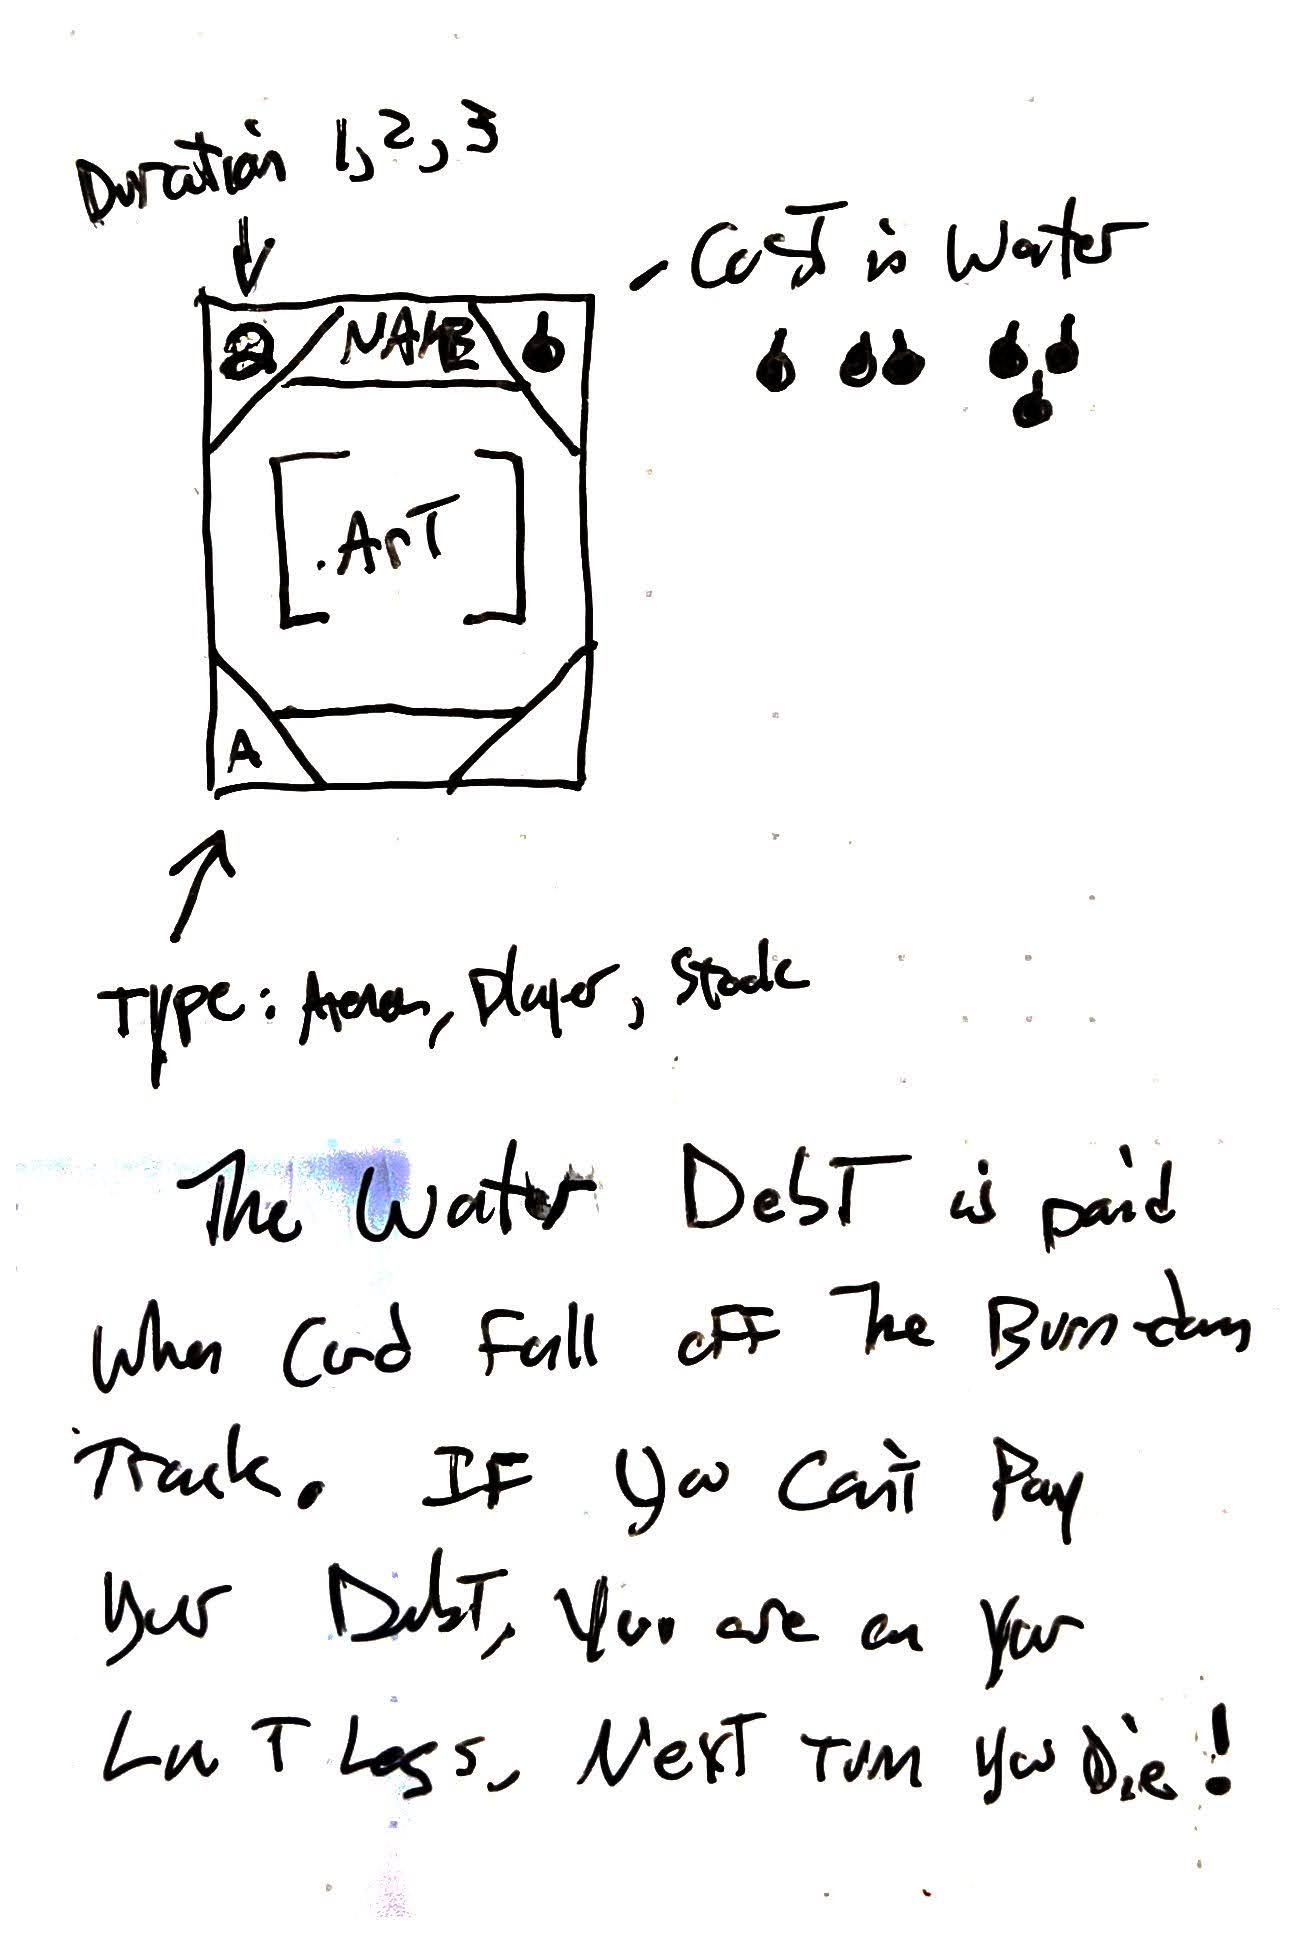 Duration 1, 2, 3
- Cost is Water
2 NAME
.ArT
A
Type: Arena, Player, Stack
The Water Debt is paid
When Card Fall off The Burn-down
Track. IF you Can't Pay
your Debt, you are on your
Last Legs, Next Turn you Die!